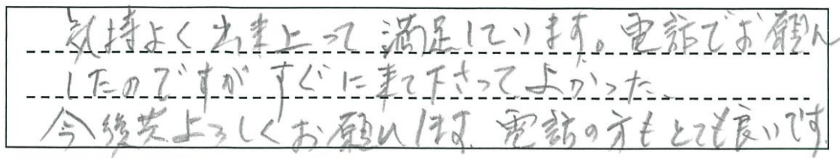 気持よく出来上って満足しています。電話でお願い
したのですがすぐに来て下さってよかった。
今後共よろしくお願いします。電話の方もとても良いです